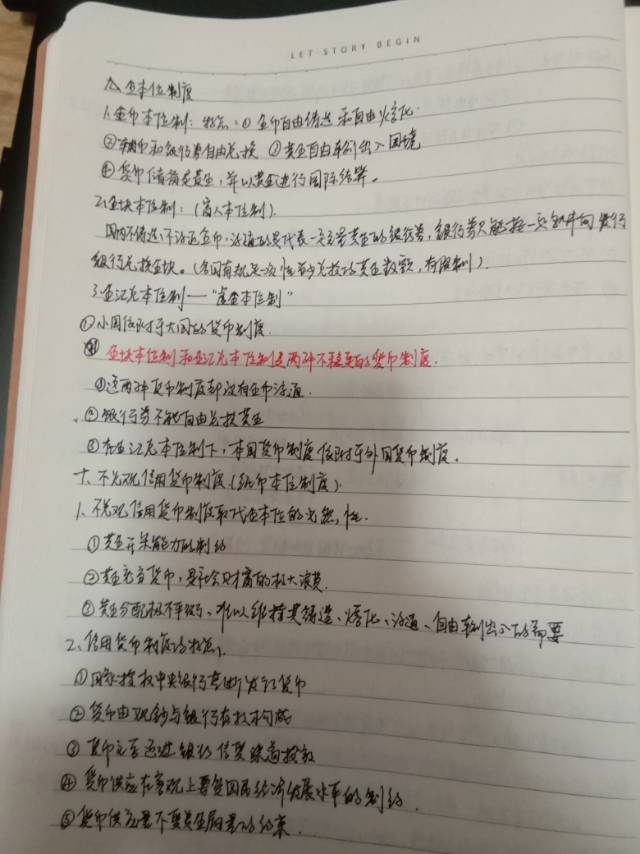 LET STORY BEGIN
金本位制度
1.金币本位制：特点：① 金币自由铸造和自由熔化
②辅币和银行券自由兑换 ③黄金自由输出入国境
④货币储备是黄金，并以黄金进行国际结算。
2.金块本位制：（富人本位制）.
国内不铸造、不流通金币，流通的是代表一定重量黄金的银行券，银行券只能按一定条件向发行
银行兑换金块。（各国有规定一次性至少兑换的黄金数额，有限制）.
3.金汇兑本位制——“虚金本位制”
①小国依附于大国的货币制度.
金块本位制和金汇兑本位制是两种不稳定的货币制度.
①这两种货币制度都没有金币流通.
②银行券不能自由兑换黄金
③在金汇兑本位制下，本国货币制度依附于外国货币制度.
十、不兑现信用货币制度（纸币本位制度）.
1、不兑现信用货币制度取代金本位的必然性.
①黄金开采能力的制约
②黄金充当货币，是社会财富的极大浪费.
③黄金分配极不平衡，难以维持其铸造、熔化、流通、自由输出入的需要
2、信用货币制度的特点.
①国家授权中央银行垄断发行货币
②货币由现钞与银行存款构成
③货币主要通过银行信贷渠道投放
④货币供应在客观上要受国民经济发展水平的制约.
⑤货币供应量不受贵金属量的约束.